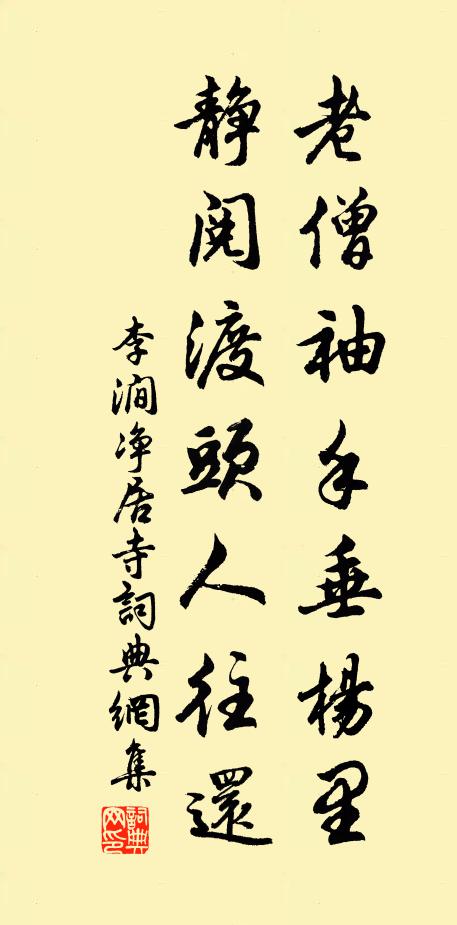 老僧袖手垂楊里
静閱渡頭人往還
李澗净居寺詞典網集
詞典网印